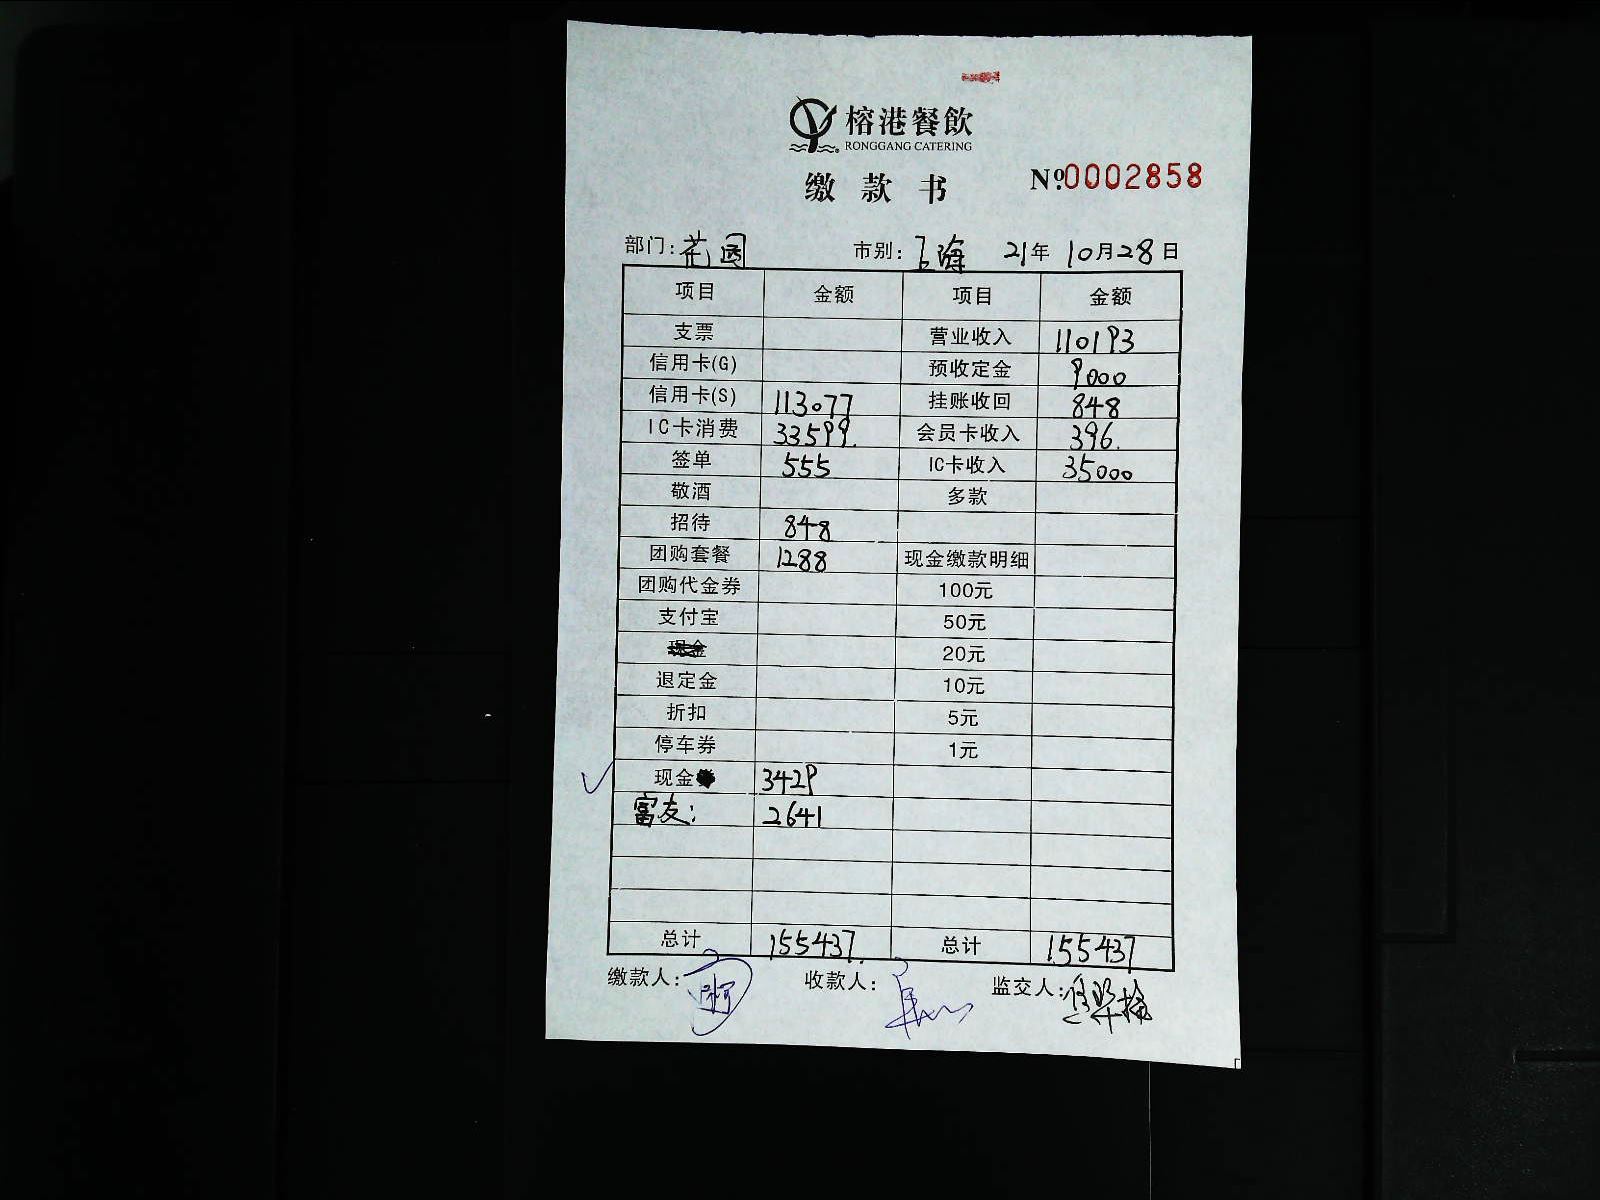 榕港餐飲
RONGGANG CATERING
缴款书 №0002858
部门: 花园 市别: 上海 21年 10月28日
项目 金额 项目 金额
支票 营业收入 110193
信用卡(G) 预收定金 9000
信用卡(S) 113077 挂账收回 848
IC卡消费 33599. 会员卡收入 396.
签单 555 IC卡收入 35000
敬酒 多款
招待 848
团购套餐 1288 现金缴款明细
团购代金券 100元
支付宝 50元
现金 20元
退定金 10元
折扣 5元
停车券 1元
现金 3429
富友: 2641
总计 155437. 总计 155437
缴款人: 收款人: 监交人: